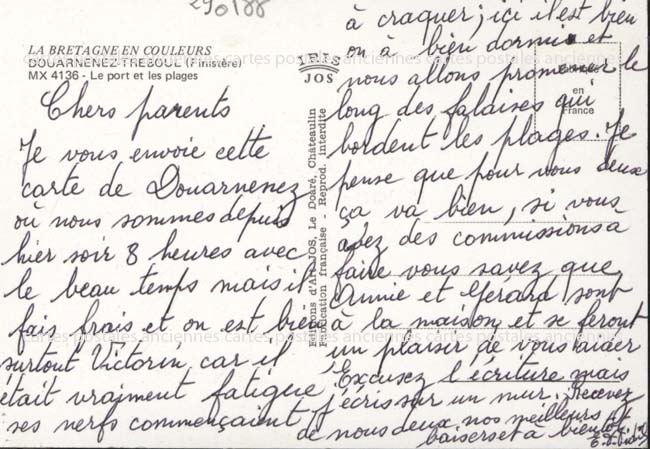 290188
LA BRETAGNE EN COULEURS
DOUARNENEZ-TREBOUL (Finistère)
MX 4136 - Le port et les plages
IRIS
JOS
Editions d'Art JOS, Le Doaré, Châteaulin
Fabrication française - Reprod. interdite
en
France
cartes postales anciennes cartes postales anciennes cartes postales anciennes
Chers parents
Je vous envoie cette
carte de Douarnenez
où nous sommes depuis
hier soir 8 heures avec
le beau temps mais il
fais frais et on est bien
surtout Victorin car il
était vraiment fatigué
ses nerfs commençaient
à craquer; ici il est bien
on à bien dormi et
nous allons promener le
long des falaises qui
bordent les plages. Je
pense que pour vous deux
ça va bien, si vous
avez des commissions à
faire vous savez que
Annie et Gérard sont
à la maison et se feront
un plaisir de vous aider
Excusez l'écriture mais
j'écris sur un mur. Recevez
de nous deux nos meilleurs
baisers et à bientôt
cartes postales anciennes cartes postales anciennes cartes postales anciennes